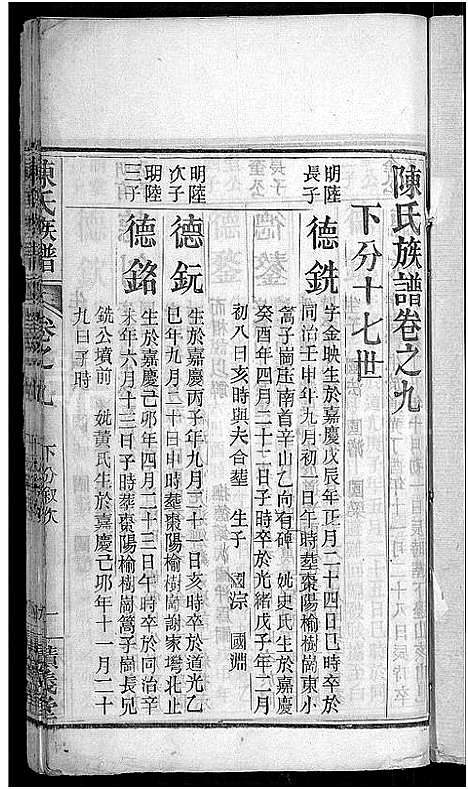 陳氏族譜卷之九
下分十七世
明陸
長子
德銑
字金映生於嘉慶戊辰年正月二十四日巳時卒於
同治壬申年九月初一日午時葬棗陽榆樹崗東小
蒿子崗庒南首辛山乙向有碑 妣史氏生於嘉慶
癸酉年四月二十二日子時卒於光緒戊子年二月
初八日亥時與夫合葬 生子 國淙 國淵
明陸
次子
德鈨
生於嘉慶丙子年九月二十一日亥時卒於道光乙
巳年九月二十日申時葬棗陽榆樹崗謝家塆北止
明陸
三子
德銘
生於嘉慶己卯年四月二十三日午時卒於同治辛
未年六月十三日子時葬棗陽榆樹崗蒿子崗長兄
銑公墳前 妣黃氏生於嘉慶己卯年十一月二十
九日子時
陳氏族譜
卷之九
下分叙次
一